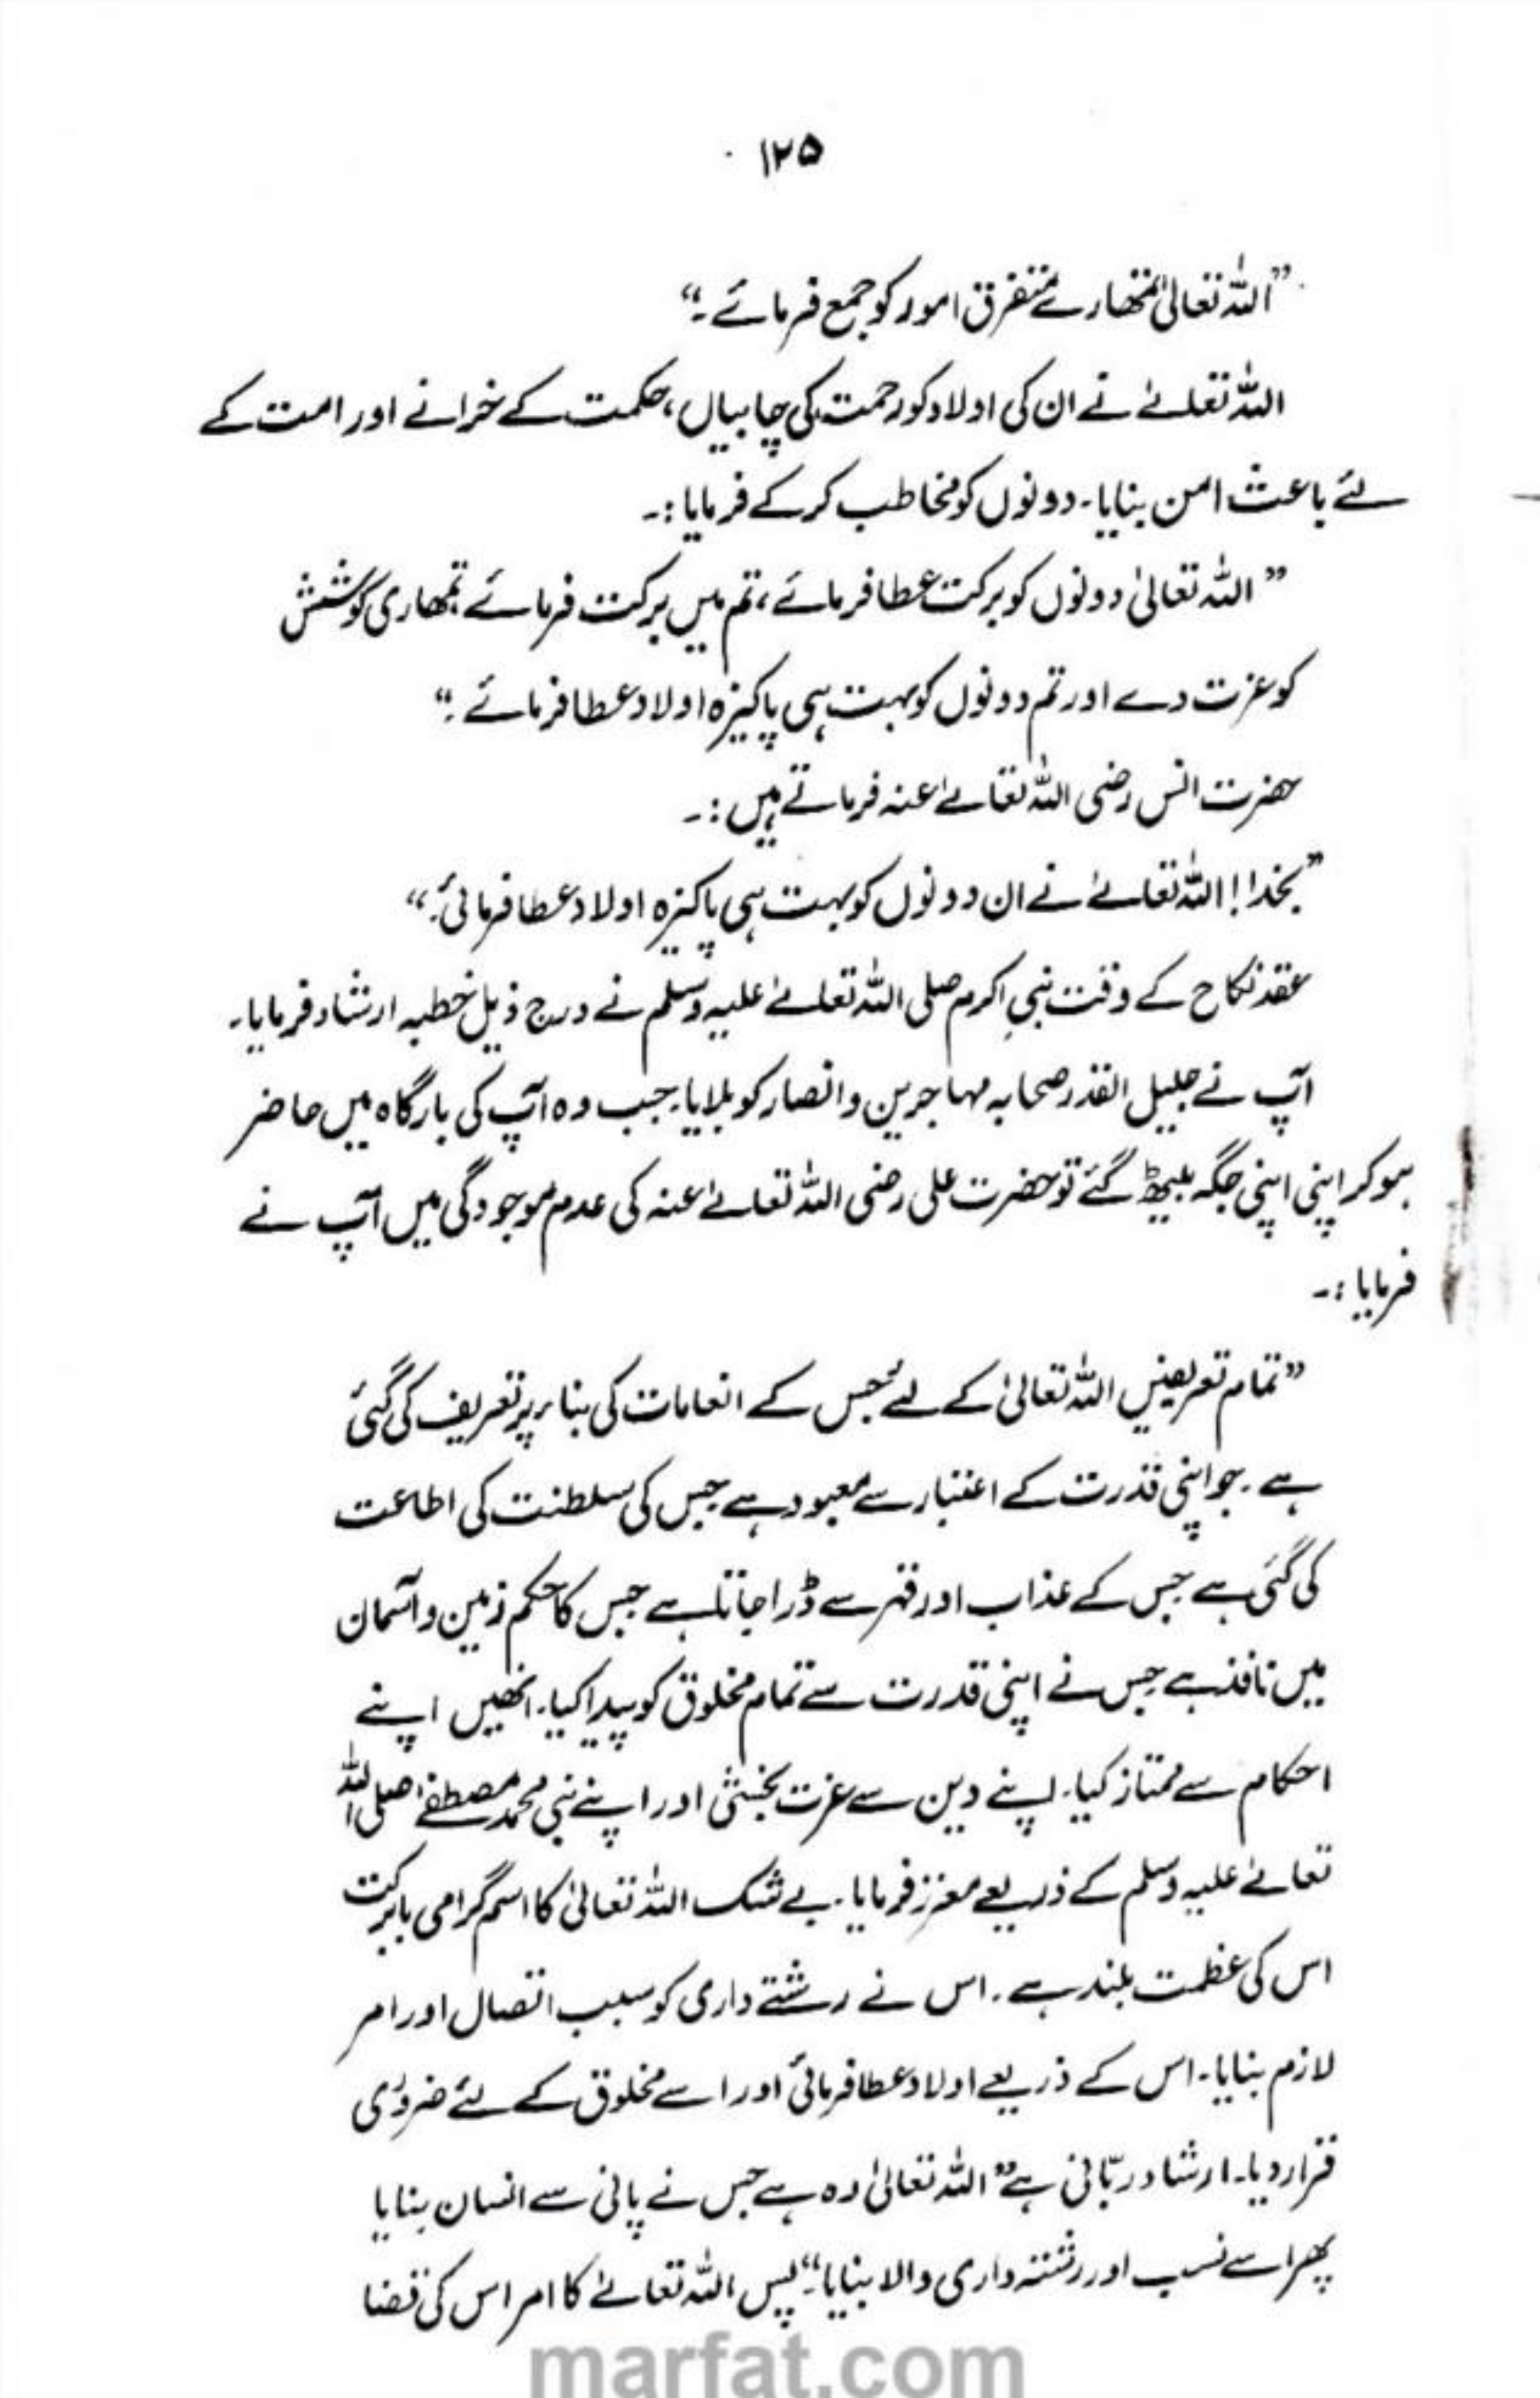 ۱۲۵
”اللہ تعالیٰ تمھارے متفرق امور کو جمع فرمائے۔“
اللہ تعالےٰ نے ان کی اولاد کو رحمت کی چابیاں، حکمت کے خزانے اور امت کے
لئے باعث امن بنایا۔ دونوں کو مخاطب کر کے فرمایا :۔
” اللہ تعالیٰ دونوں کو برکت عطا فرمائے، تم میں برکت فرمائے تمھاری کوشش
کو عزت دے اور تم دونوں کو بہت ہی پاکیزہ اولاد عطا فرمائے۔“
حضرت انس رضی اللہ تعالےٰ عنہ فرماتے ہیں :۔
”بخدا! اللہ تعالےٰ نے ان دونوں کو بہت ہی پاکیزہ اولاد عطا فرمائی۔“
عقد نکاح کے وقت نبیِ اکرم صلی اللہ تعالےٰ علیہ وسلم نے درج ذیل خطبہ ارشاد فرمایا۔
آپ نے جلیل القدر صحابہ مہاجرین و انصار کو بلایا۔ جب وہ آپ کی بارگاہ میں حاضر
ہو کر اپنی اپنی جگہ بیٹھ گئے تو حضرت علی رضی اللہ تعالےٰ عنہ کی عدم موجودگی میں آپ نے
فرمایا :۔
”تمام تعریفیں اللہ تعالیٰ کے لئے جس کے انعامات کی بنا پر تعریف کی گئی
ہے۔ جو اپنی قدرت کے اعتبار سے معبود ہے جس کی سلطنت کی اطاعت
کی گئی ہے جس کے عذاب اور قہر سے ڈرا جاتا ہے جس کا حکم زمین و آسمان
میں نافذ ہے جس نے اپنی قدرت سے تمام مخلوق کو پیدا کیا۔ انھیں اپنے
احکام سے ممتاز کیا۔ اپنے دین سے عزت بخشی اور اپنے نبی محمد مصطفےٰ صلی اللہ
تعالےٰ علیہ وسلم کے ذریعے معزز فرمایا۔ بے شک اللہ تعالیٰ کا اسم گرامی بابرکت
اس کی عظمت بلند ہے۔ اس نے رشتے داری کو سبب اتصال اور امر
لازم بنایا۔ اس کے ذریعے اولاد عطا فرمائی اور اسے مخلوق کے لئے ضروری
قرار دیا۔ ارشاد ربّانی ہے ”اللہ تعالیٰ وہ ہے جس نے پانی سے انسان بنایا
پھر اسے نسب اور رشتہ داری والا بنایا۔“ پس اللہ تعالےٰ کا امر اس کی قضا
marfat.com